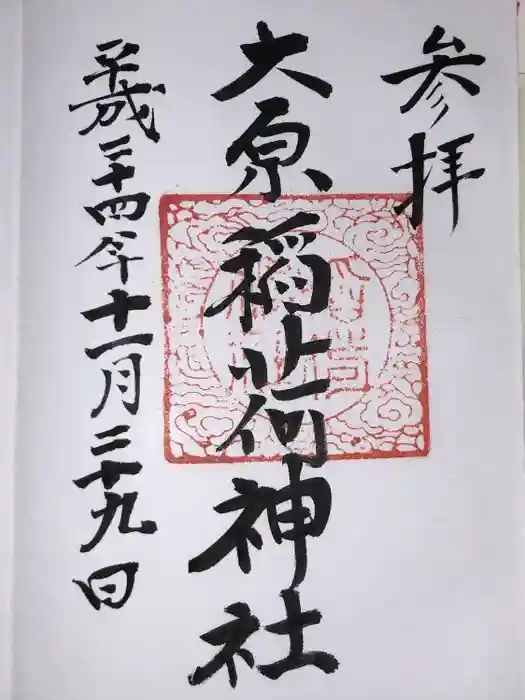 参拝
大原稲荷神社
平成二十四年十一月二十九日